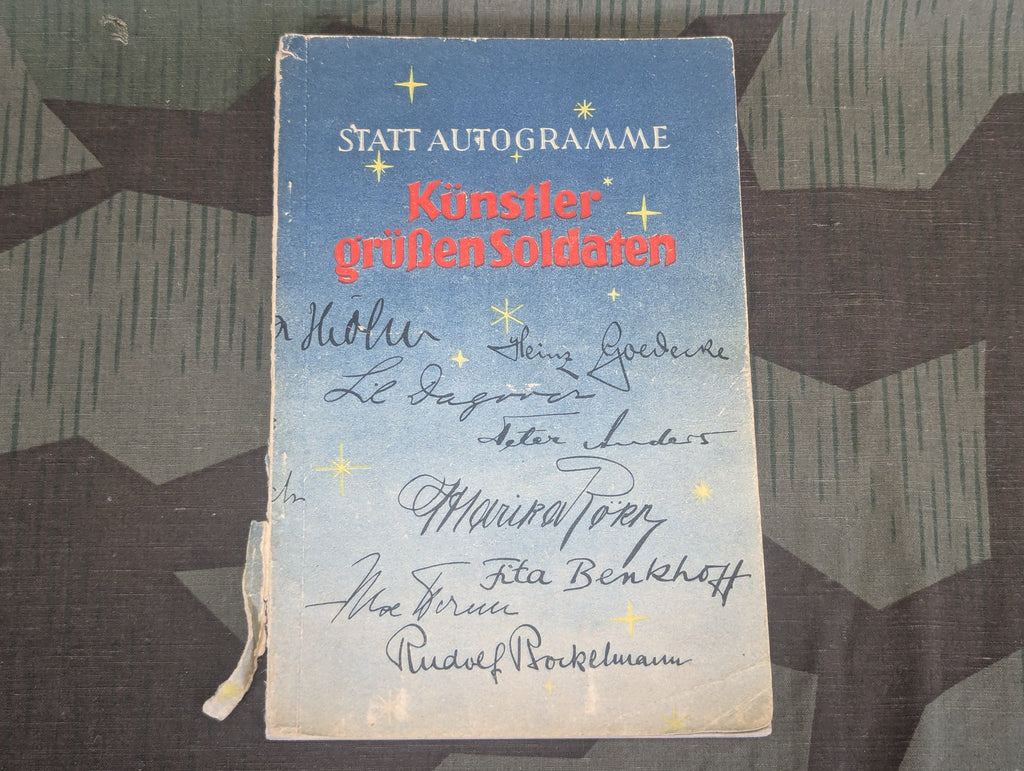 STATT AUTOGRAMME
Künstler
grüßen Soldaten
Heinz Goedecke
Lil Dagover
Peter Anders
Marika Rökk
Fita Benkhoff
Rudolf Bockelmann